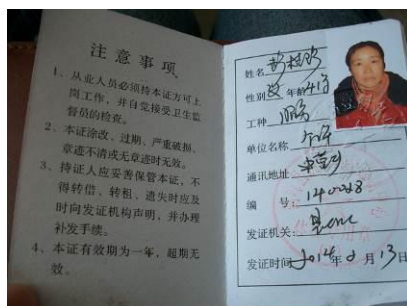 注意事项
1、从业人员必须持本证方可上
岗工作，并自觉接受卫生监
督员的检查。
2、本证涂改、过期、严重破损、
章迹不清或无章迹时无效。
3、持证人应妥善保管本证，不
得转借、转租，遗失时应及
时向发证机构声明，并办理
补发手续。
4、本证有效期为一年，超期无
效。
姓名
性别 女 年龄 41岁
工种
单位名称
通讯地址
编 号： 140028
发证机关：
发证时间 2014年 月13日